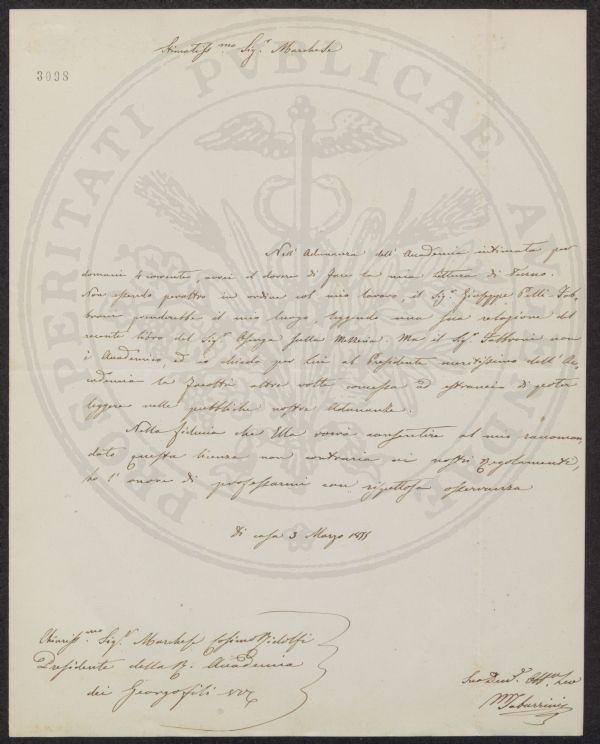 Stimatiss.mo Sig.r Marchese
3098
PROSPERITATI PVBLICAE AVGENDAE
Nell' Adunanza dell' Accademia intimata per
domani 4 corrente, avrei il dovere di fare la mia lettura di Turno.
Non essendo peraltro in ordine col mio lavoro, il Sig.r Giuseppe Pelli Fab-
broni prenderebbe il mio luogo, leggendo una sua relazione del
recente libro del Sig.r sulla . Ma il Sig.r Fabbroni non
è Accademico, ed io chiedo per lui al Presidente meritissimo dell' Ac-
cademia la facoltà altre volte concessa ad estranei di poter
leggere nelle pubbliche nostre Adunanze.
Nella fiducia che Ella vorrà consentire al mio raccoman-
dato questa licenza non contraria ai nostri Regolamenti,
ho l' onore di professarmi con rispettosa osservanza
Di casa 3 Marzo 1855
Chiariss.mo Sig.r Marchese Cosimo Ridolfi
Presidente della R. Accademia
dei Georgofili
Suo Dev.
M Tabarrini